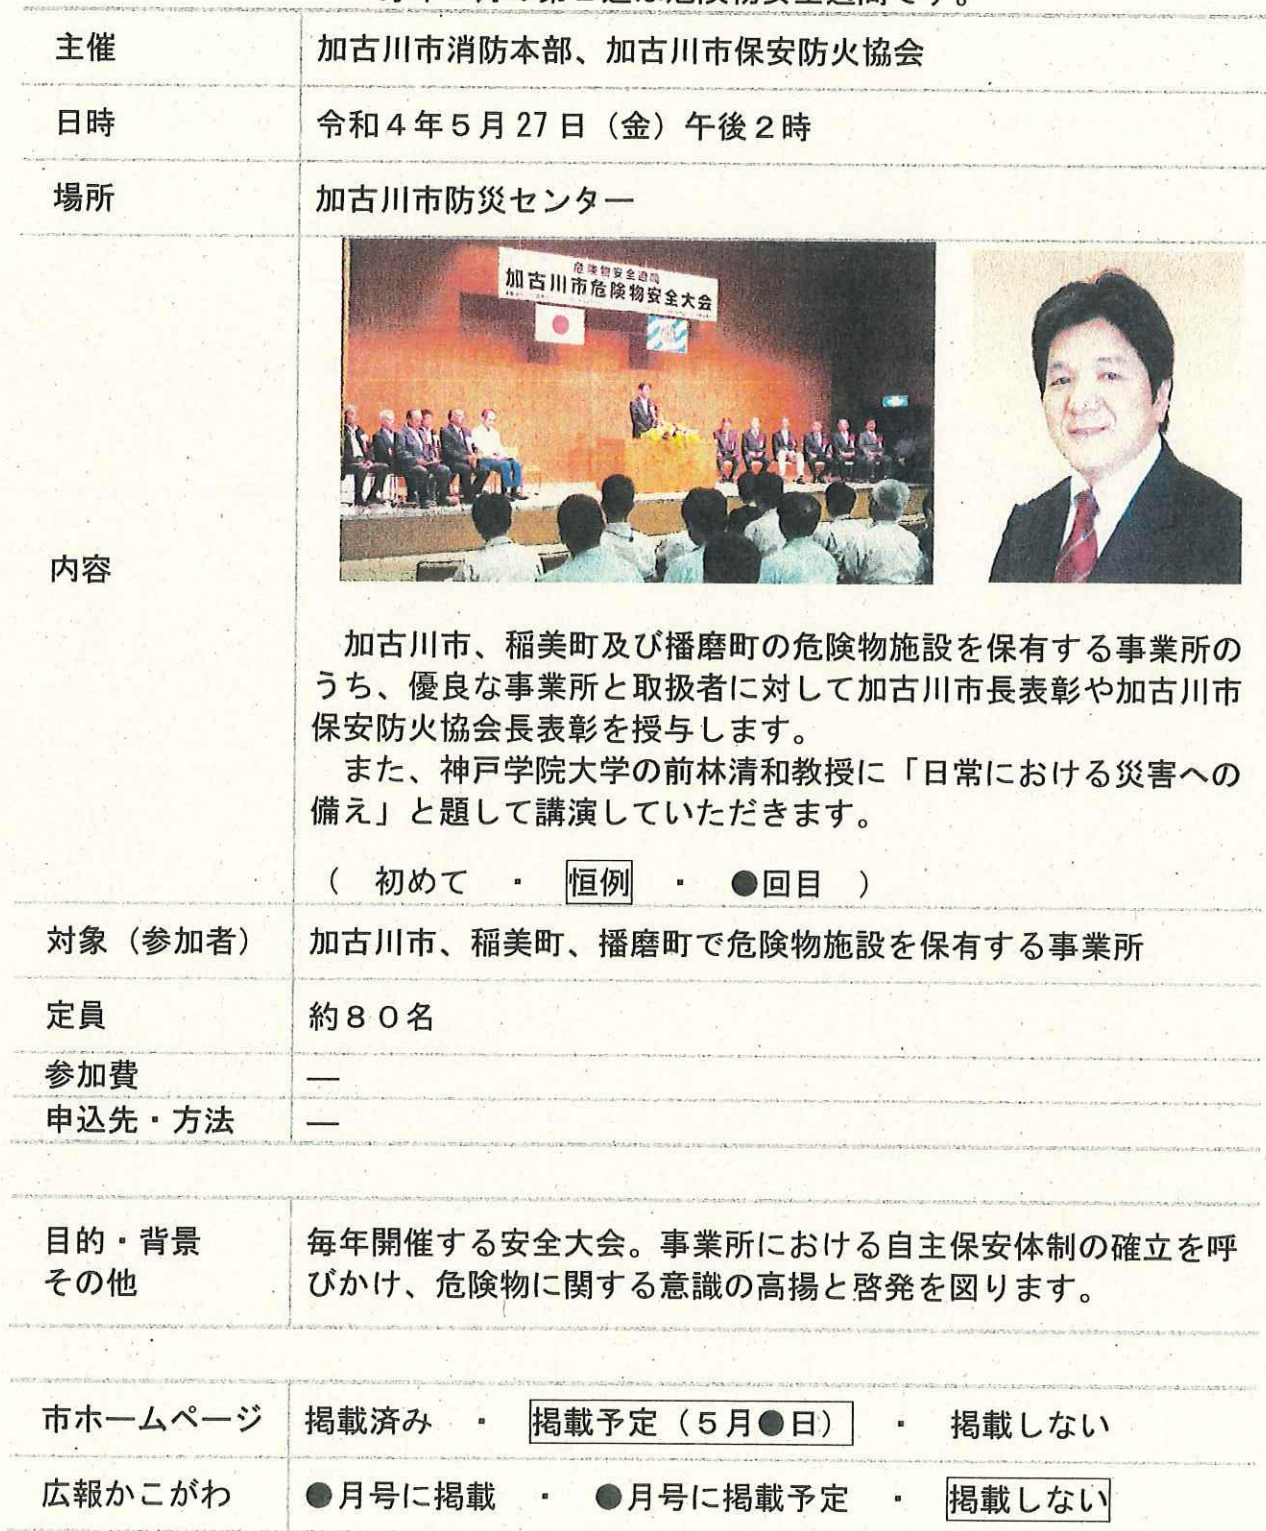 主催
加古川市消防本部、加古川市保安防火協会
日時
令和４年５月27日（金）午後２時
場所
加古川市防災センター
危険物安全週間
加古川市危険物安全大会
内容
加古川市、稲美町及び播磨町の危険物施設を保有する事業所の
うち、優良な事業所と取扱者に対して加古川市長表彰や加古川市
保安防火協会長表彰を授与します。
また、神戸学院大学の前林清和教授に「日常における災害への
備え」と題して講演していただきます。
（　初めて　・　恒例　・　●回目　）
対象（参加者）
加古川市、稲美町、播磨町で危険物施設を保有する事業所
定員
約８０名
参加費
―
申込先・方法
―
目的・背景
その他
毎年開催する安全大会。事業所における自主保安体制の確立を呼
びかけ、危険物に関する意識の高揚と啓発を図ります。
市ホームページ
掲載済み　・　掲載予定（５月●日）　・　掲載しない
広報かこがわ
●月号に掲載　・　●月号に掲載予定　・　掲載しない